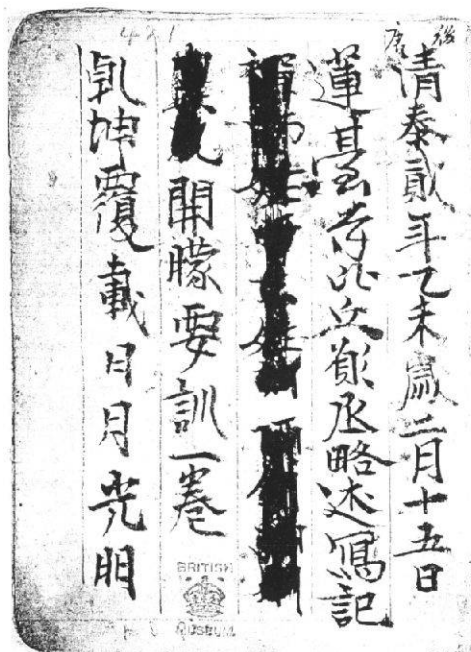 後唐
清泰貳年乙未歲二月十五日
蓮臺寺比丘願丞略述寫記
開朦要訓一卷
乾坤覆載日月光明
BRITISH
MUSEUM